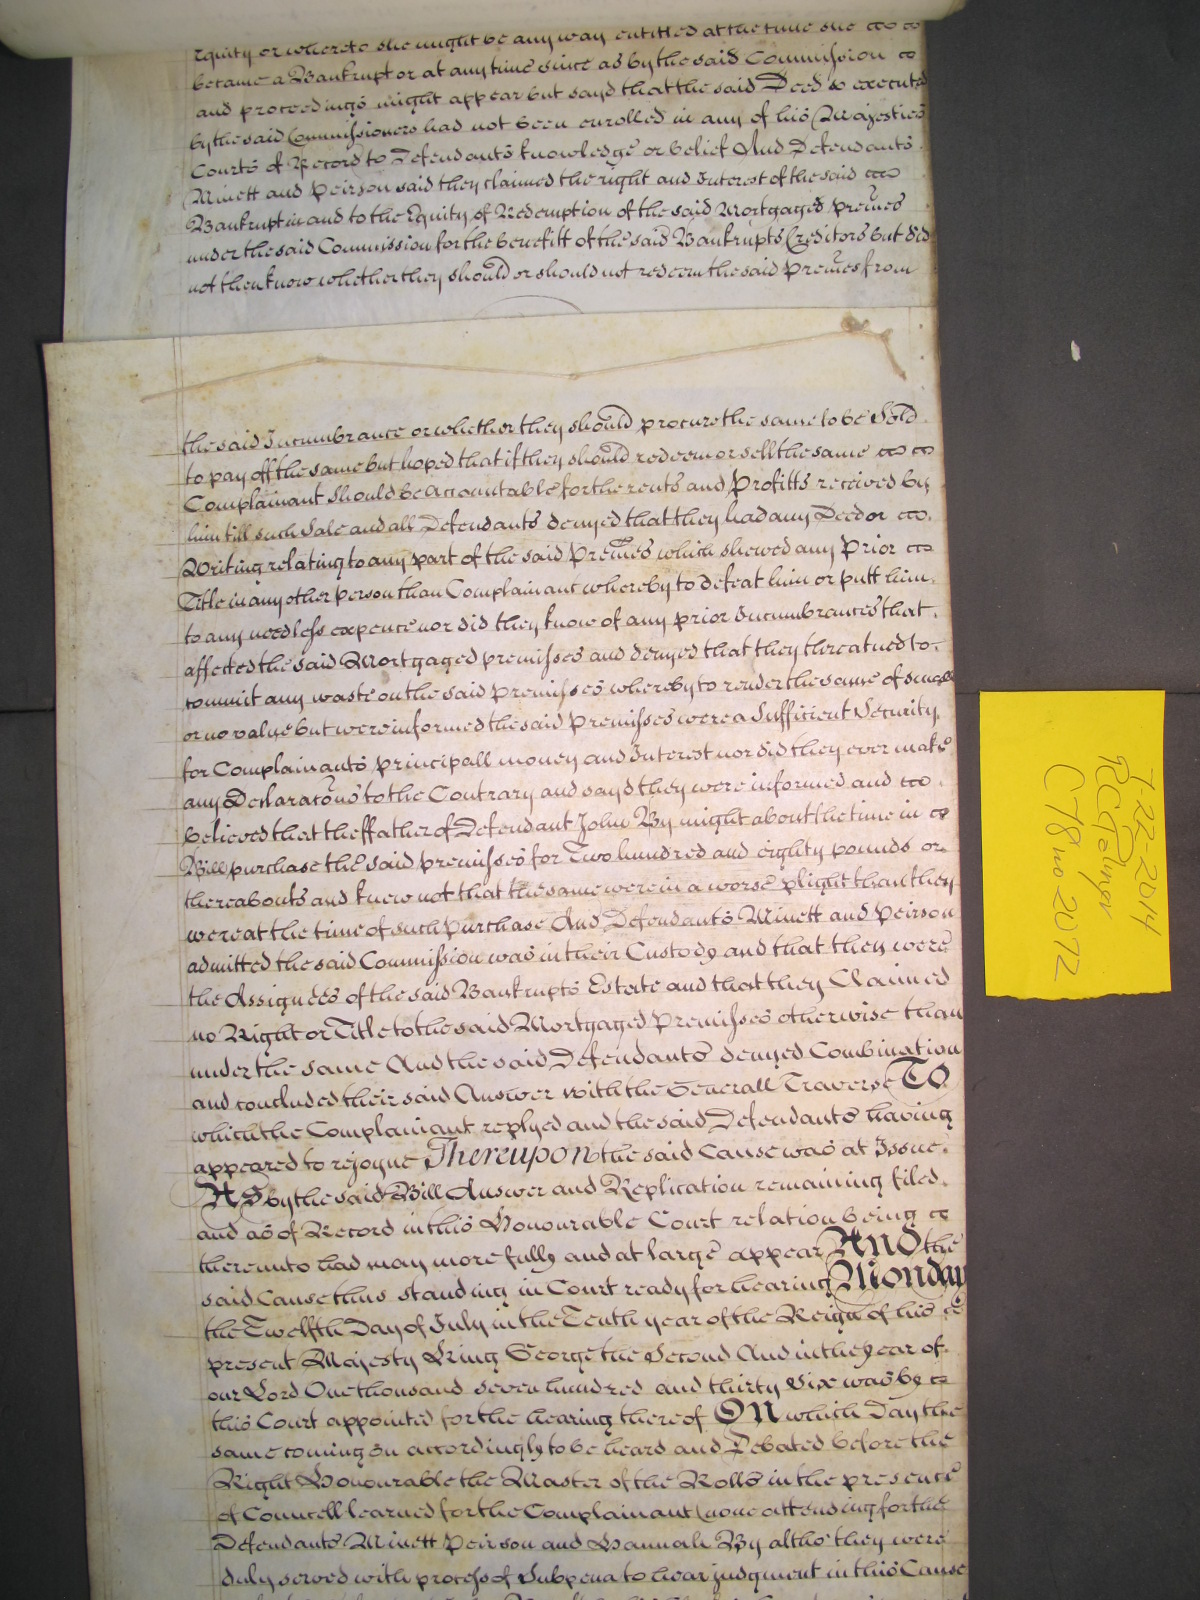 Equity or whereto she might be any way entitled at the time she
became a Bankrupt or at any time since as by the said Commission
and proceedings might appear but sayd that the said Deed so executed
by the said Commissioners had not been enrolled in any of his Majesties
Courts of Record to Defendants knowledge or belief And Defendants
Minett and Peirson said they claimed the right and Interest of the said
Bankrupt in and to the Equity of Redemption of the said Mortgaged Premes
under the said Commission for the benefitt of the said Bankrupts Creditors but did
not then know whether they should or should not redeem the said Premes from
the said Incumbrance or whether they should procure the same to be Sold
to pay off the same but hoped that if they should redeem or sell the same
Complainant should be accountable for the rents and Profitts received by
him till such Sale and all Defendants denyed that they had any Deed or
Writing relating to any part of the said Premes which shewed any Prior
Title in any other person than Complainant whereby to defeat him or putt him
to any needless expence nor did they know of any prior Incumbrances that
affected the said Mortgaged premisses and denyed that they threatned to
commit any waste on the said Premisses whereby to render the same of small
or no value but were informed the said Premisses were a Sufficient Security
for Complainants principall money and Interest nor did they ever make
any Declaracons to the Contrary and sayd they were informed and
believed that the ffather of Defendant John By might about the time in
Bill purchase the said premisses for Two hundred and eighty pounds or
thereabouts and knew not that the same were in a worse plight than they
were at the time of such Purchase And Defendants Minett and Peirson
admitted the said Commission was in their Custody and that they were
the Assignees of the said Bankrupts Estate and that they Claimed
no Right or Title to the said Mortgaged Premisses otherwise than
under the same And the said Defendants denyed Combination
and concluded their said Answer with the Generall Traverse To
which the Complainant replyed and the said Defendants having
appeared to rejoyne Thereupon the said Cause was at Issue
As by the said Bill Answer and Replication remaining filed
and as of Record in this Honourable Court relation being
thereunto had may more fully and at large appear And the
said Cause thus standing in Court ready for hearing Monday
the Twelfth Day of July in the Tenth year of the Reign of his
present Majesty King George the Second And in the year of
our Lord One thousand seven hundred and thirty Six was by
this Court appointed for the hearing thereof On which Day the
same coming on accordingly to be heard and Debated before the
Right Honourable the Master of the Rolls in the presence
of Councell learned for the Complainant (none attending for the
Defendants Minett Peirson and Hannah By altho' they were
duly served with process of Subpena to hear judgment in this Cause
7-22-2014
RCGalinger
C78 no 2072